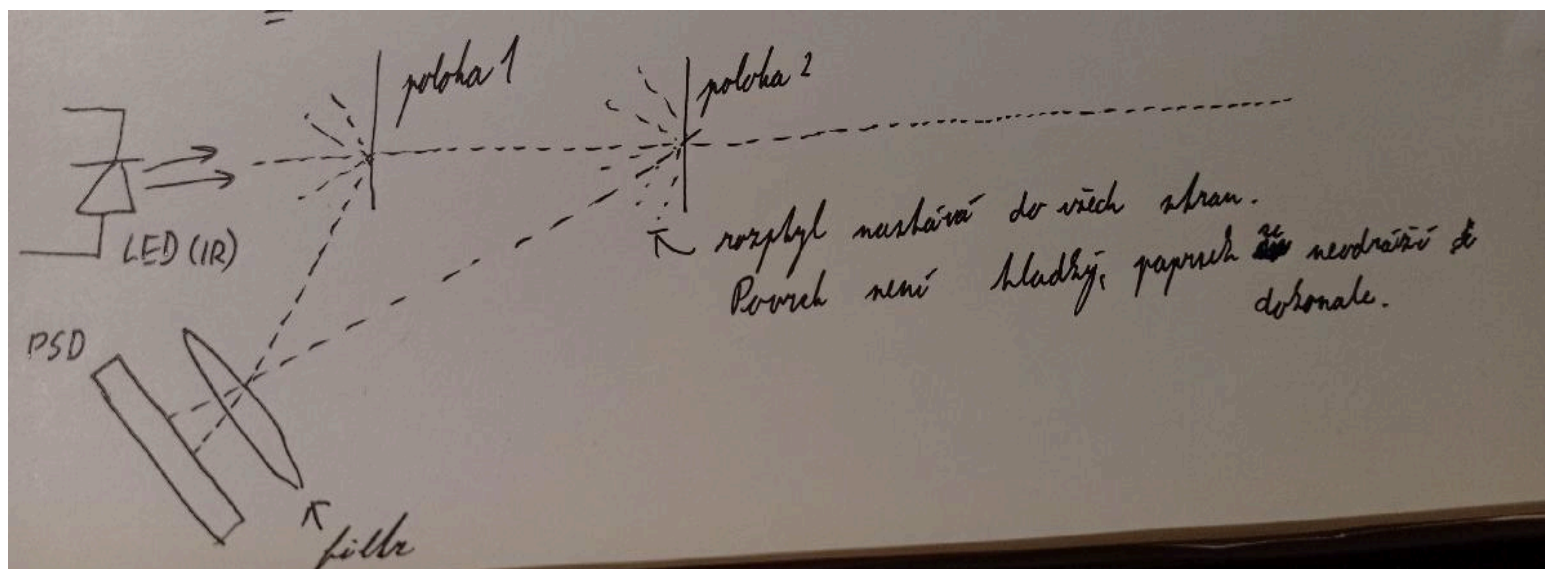 poloha 1
poloha 2
LED (IR)
rozptyl nastává do všech stran.
Povrch není hladký, paprsek se neodráží
dokonale.
PSD
filtr